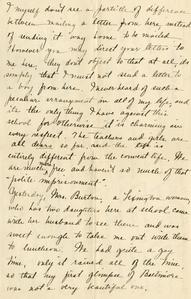 I myself don't see a particle of difference
between mailing a letter from here, instead
of sending it way home to be mailed.
However you may direct your letters to
me here, they don't object to that at all, do
simply that I must not send a letter to
a boy from here. I never heard of such a
peculiar arrangement in all of my life, and
it's the only thing I have against this
school for otherwise it is charming in
every respect. The teachers and girls are
all dears so far, and the life is
entirely different from the convent life. We
are much free and haven't so much of that
"polite imprisonment".
Yesterday, Mrs. Burton, a Lexington woman,
who has two daughters here at school, came
with her husband to see them and was
sweet enough to take me out with them
to luncheon. We had quite a good
time, only it rained all of the time
so that my first glimpse of Baltimore
was not a very beautiful one.